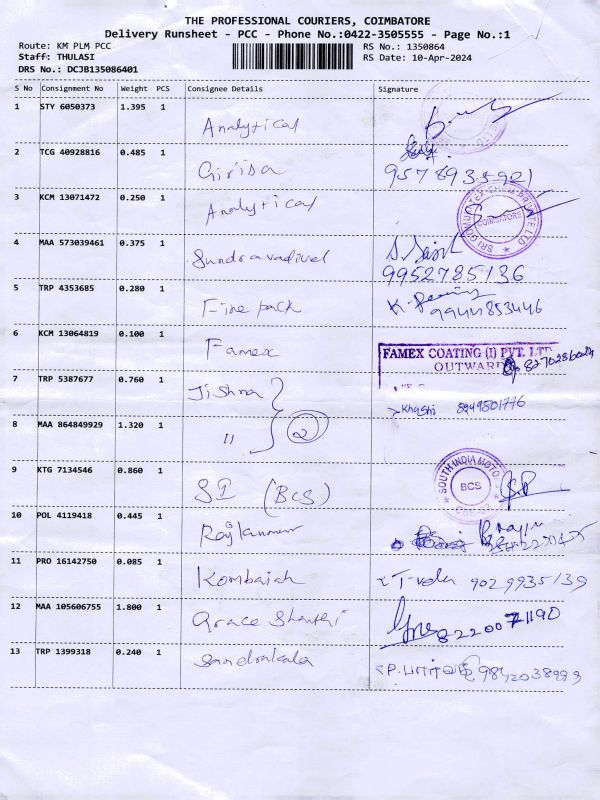 THE PROFESSIONAL COURIERS, COIMBATORE
Delivery Runsheet - PCC - Phone No.:0422-3505555 - Page No.:1
Route: KM PLM PCC
Staff: THULASI
DRS No.: DCJB135086401
RS No.: 1350864
RS Date: 10-Apr-2024
S No Consignment No Weight PCS Consignee Details Signature
1 STY 6050373 1.395 1 Analytical
2 TCG 40928816 0.485 1 Girisa
3 KCM 13071472 0.250 1 Analytical
SRI COIMBATORE
4 MAA 573039461 0.375 1 Sundravadivel 9952785136
5 TRP 4353685 0.280 1 Fine pack 9944853446
6 KCM 13064819 0.100 1 Famex
FAMEX COATING (I) PVT. LTD
OUTWARD
7 TRP 5387677 0.760 1 Jishna 8249801776
8 MAA 864849929 1.320 1 " 2
9 KTG 7134546 0.860 1 SI (BCS)
SOUTH INDIA MOTO BCS
10 POL 4119418 0.445 1 Rajkumar
11 PRO 16142750 0.085 1 Kombaiah 9029935139
12 MAA 105606755 1.800 1 Grace Shanthi 8220071190
13 TRP 1399318 0.240 1 Sandrakala